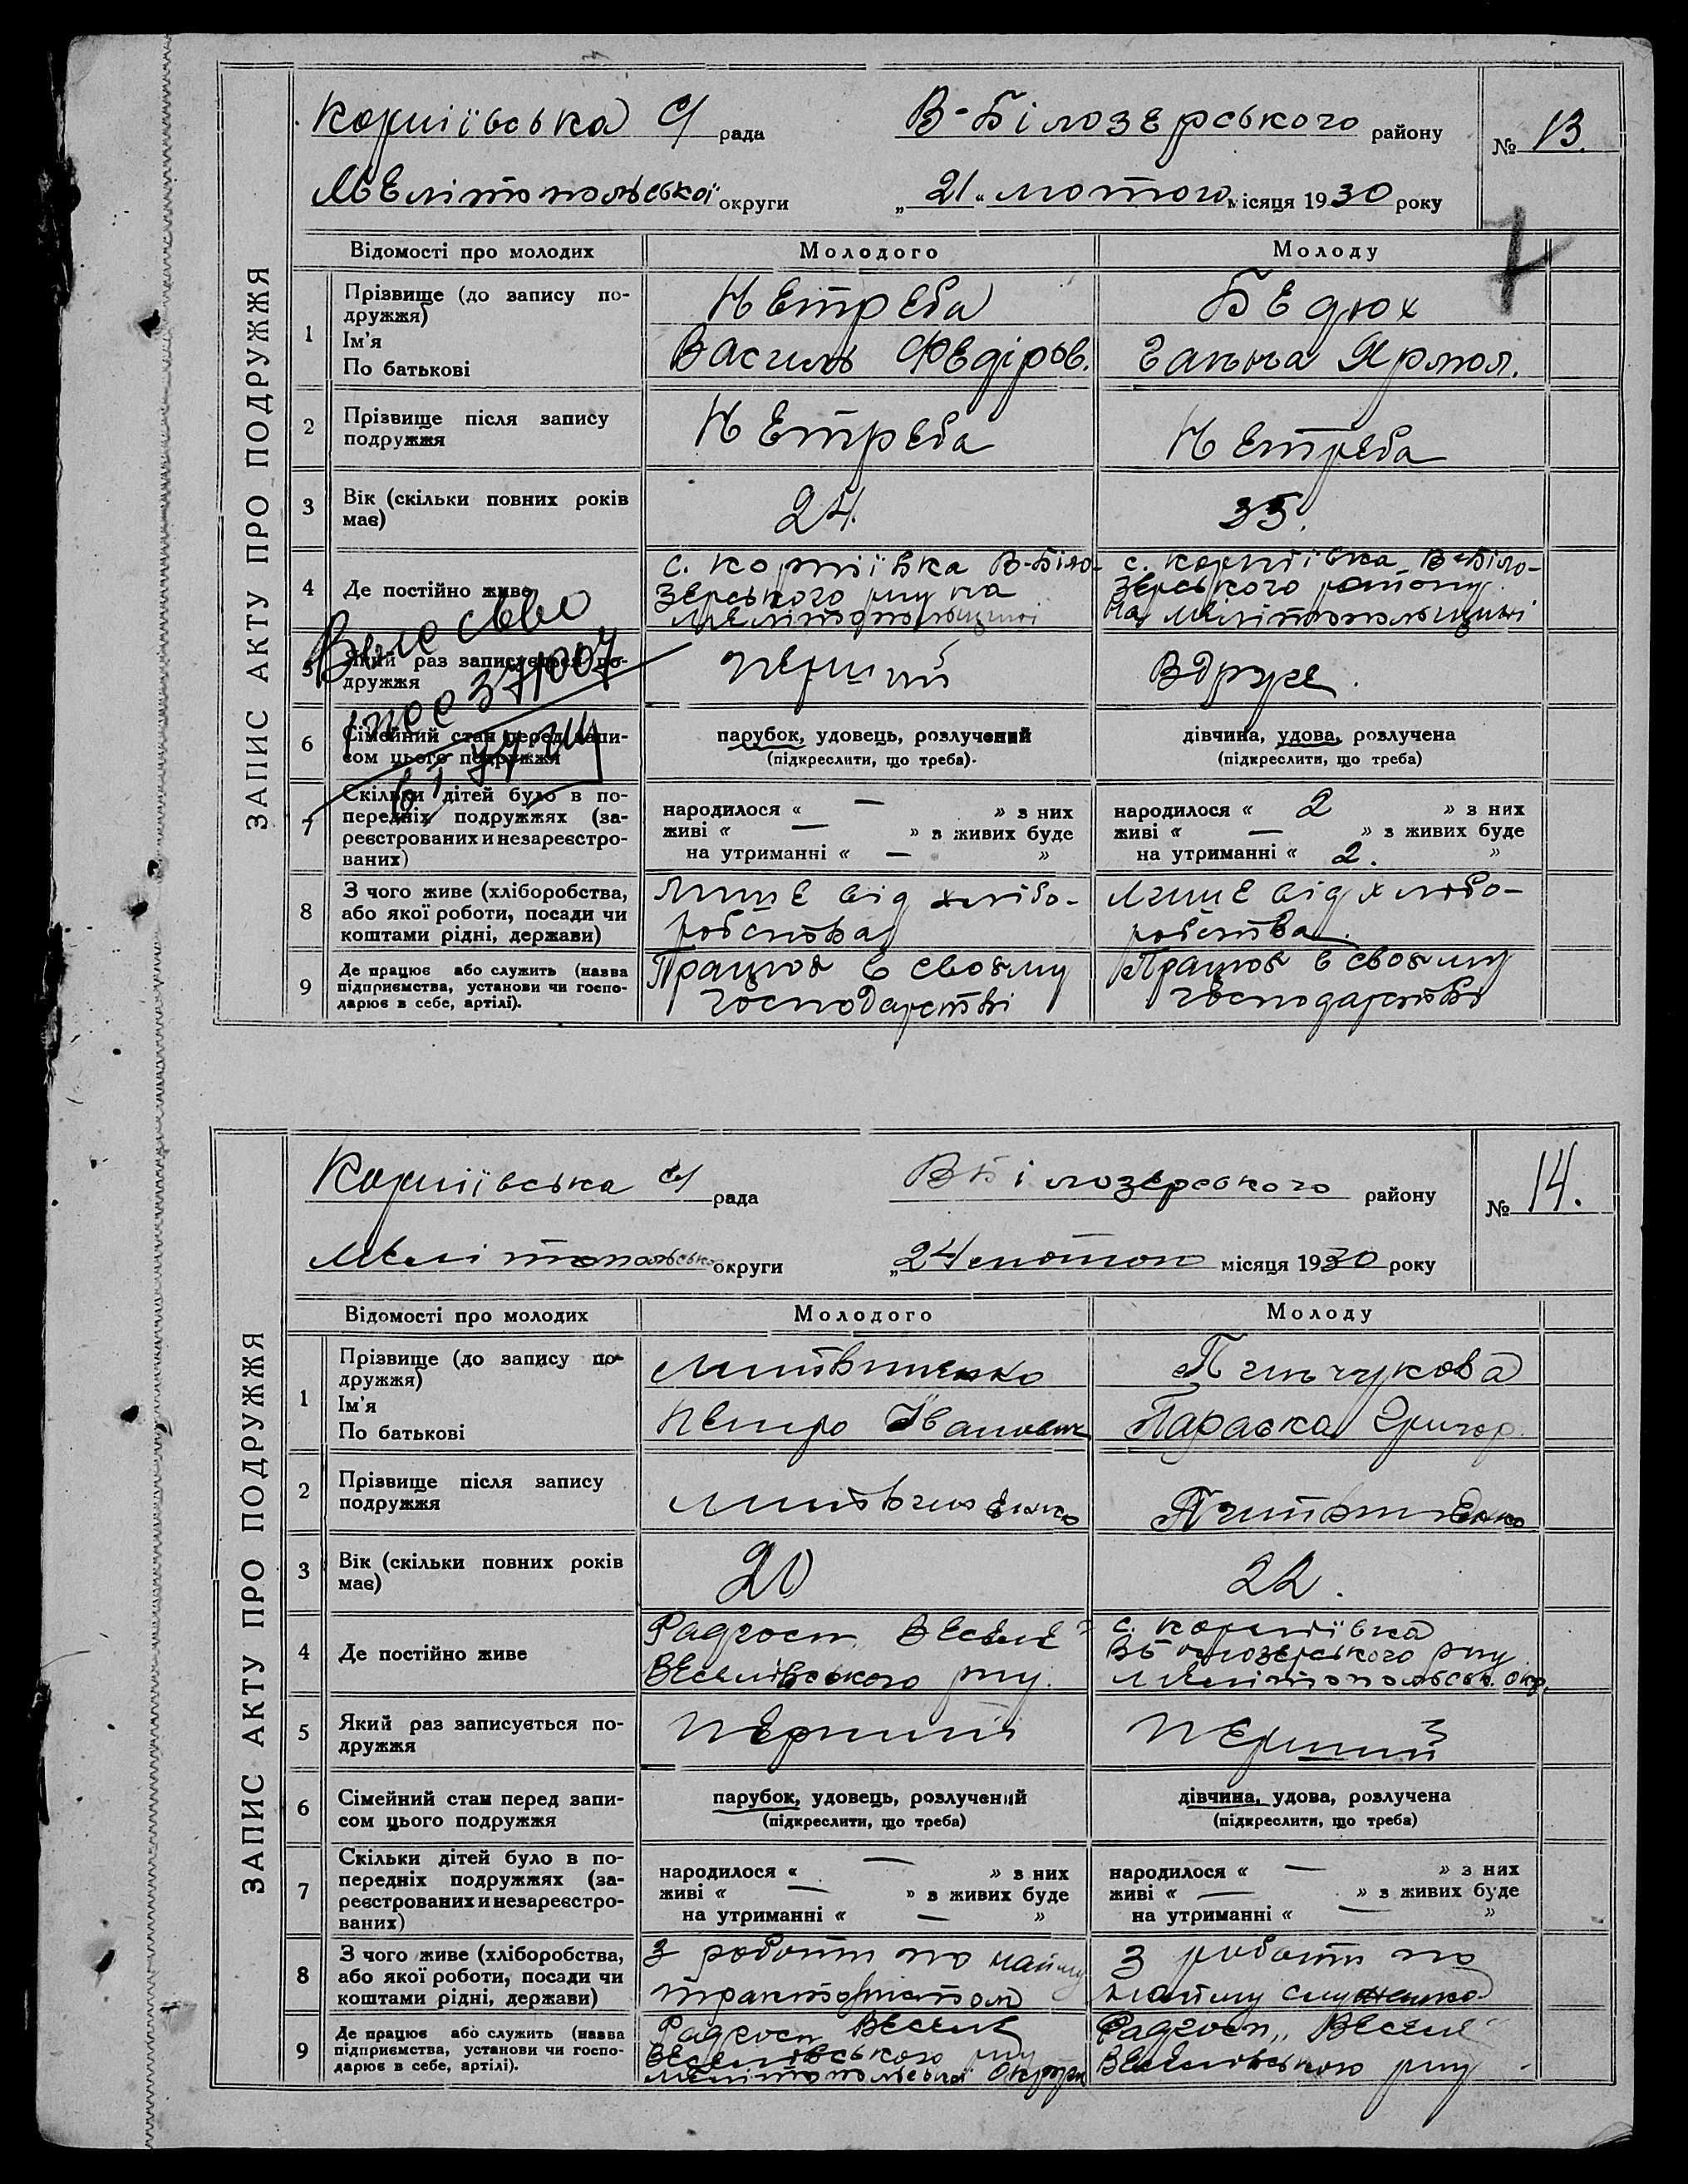 ЗАПИС АКТУ ПРО ПОДРУЖЖЯ
Корніївська с/ рада В-Білозерського району № 13.
Мелітопольської округи „21“ лютого місяця 1930 року
Відомості про молодих Молодого Молоду
1 Прізвище (до запису по-
дружжя)
Ім'я
По батькові
Нетреба
Василь Федіров.
Бедюх
Ганна Ярмол.
2 Прізвище після запису
подружжя
Нетреба
Нетреба
3 Вік (скільки повних років
має)
24.
35.
4 Де постійно живе
с. Корніївка В-Біло-
зерського р-ну на
Мелітопольщині
с. Корніївка В-Біло-
зерського району
на Мелітопольщині
5 Який раз записується по-
дружжя
перший
Вдруге.
6 Сімейний стан перед запи-
сом цього подружжя
парубок, удовець, розлучений
(підкреслити, що треба).
дівчина, удова, розлучена
(підкреслити, що треба)
7 Скільки дітей було в по-
передніх подружжях (за-
реєстрованих и незареєстро-
ваних)
народилося « — » з них
живі « — » з живих буде
на утриманні « — »
народилося « 2 » з них
живі « — » з живих буде
на утриманні « 2. »
8 З чого живе (хліборобства,
або якої роботи, посади чи
коштами рідні, держави)
Лише від хлібо-
робства
Лише від хлібо-
робства.
9 Де працює або служить (назва
підприємства, установи чи госпо-
дарює в себе, артілі).
Працює в своєму
господарстві
Працює в своєму
господарстві
ЗАПИС АКТУ ПРО ПОДРУЖЖЯ
Корніївська с/ рада В Білозерського району № 14.
Мелітопольсько округи „24 лютого місяця 1930 року
Відомості про молодих Молодого Молоду
1 Прізвище (до запису по-
дружжя)
Ім'я
По батькові
Литвиненко
Петро Іванович
Пинчукова
Параска Григор.
2 Прізвище після запису
подружжя
Литвиненко
Литвиненко
3 Вік (скільки повних років
має)
20
22.
4 Де постійно живе
Радгосп „Веселе“
Веселівського р-ну.
с. Корніївка
В Білозерського р-ну
Мелітопольськ. окр.
5 Який раз записується по-
дружжя
перший
перший
6 Сімейний стан перед запи-
сом цього подружжя
парубок, удовець, розлучений
(підкреслити, що треба)
дівчина, удова, розлучена
(підкреслити, що треба)
7 Скільки дітей було в по-
передніх подружжях (за-
реєстрованих и незареєстро-
ваних)
народилося « — » з них
живі « — » з живих буде
на утриманні « — »
народилося « — » з них
живі « — » з живих буде
на утриманні « — »
8 З чого живе (хліборобства,
або якої роботи, посади чи
коштами рідні, держави)
З роботи по найму
З роботи по
найму
9 Де працює або служить (назва
підприємства, установи чи госпо-
дарює в себе, артілі).
Радгосп Веселе
Веселівського р-ну
Мелітопольської округи
Радгосп „Веселе“
Веселівського р-ну